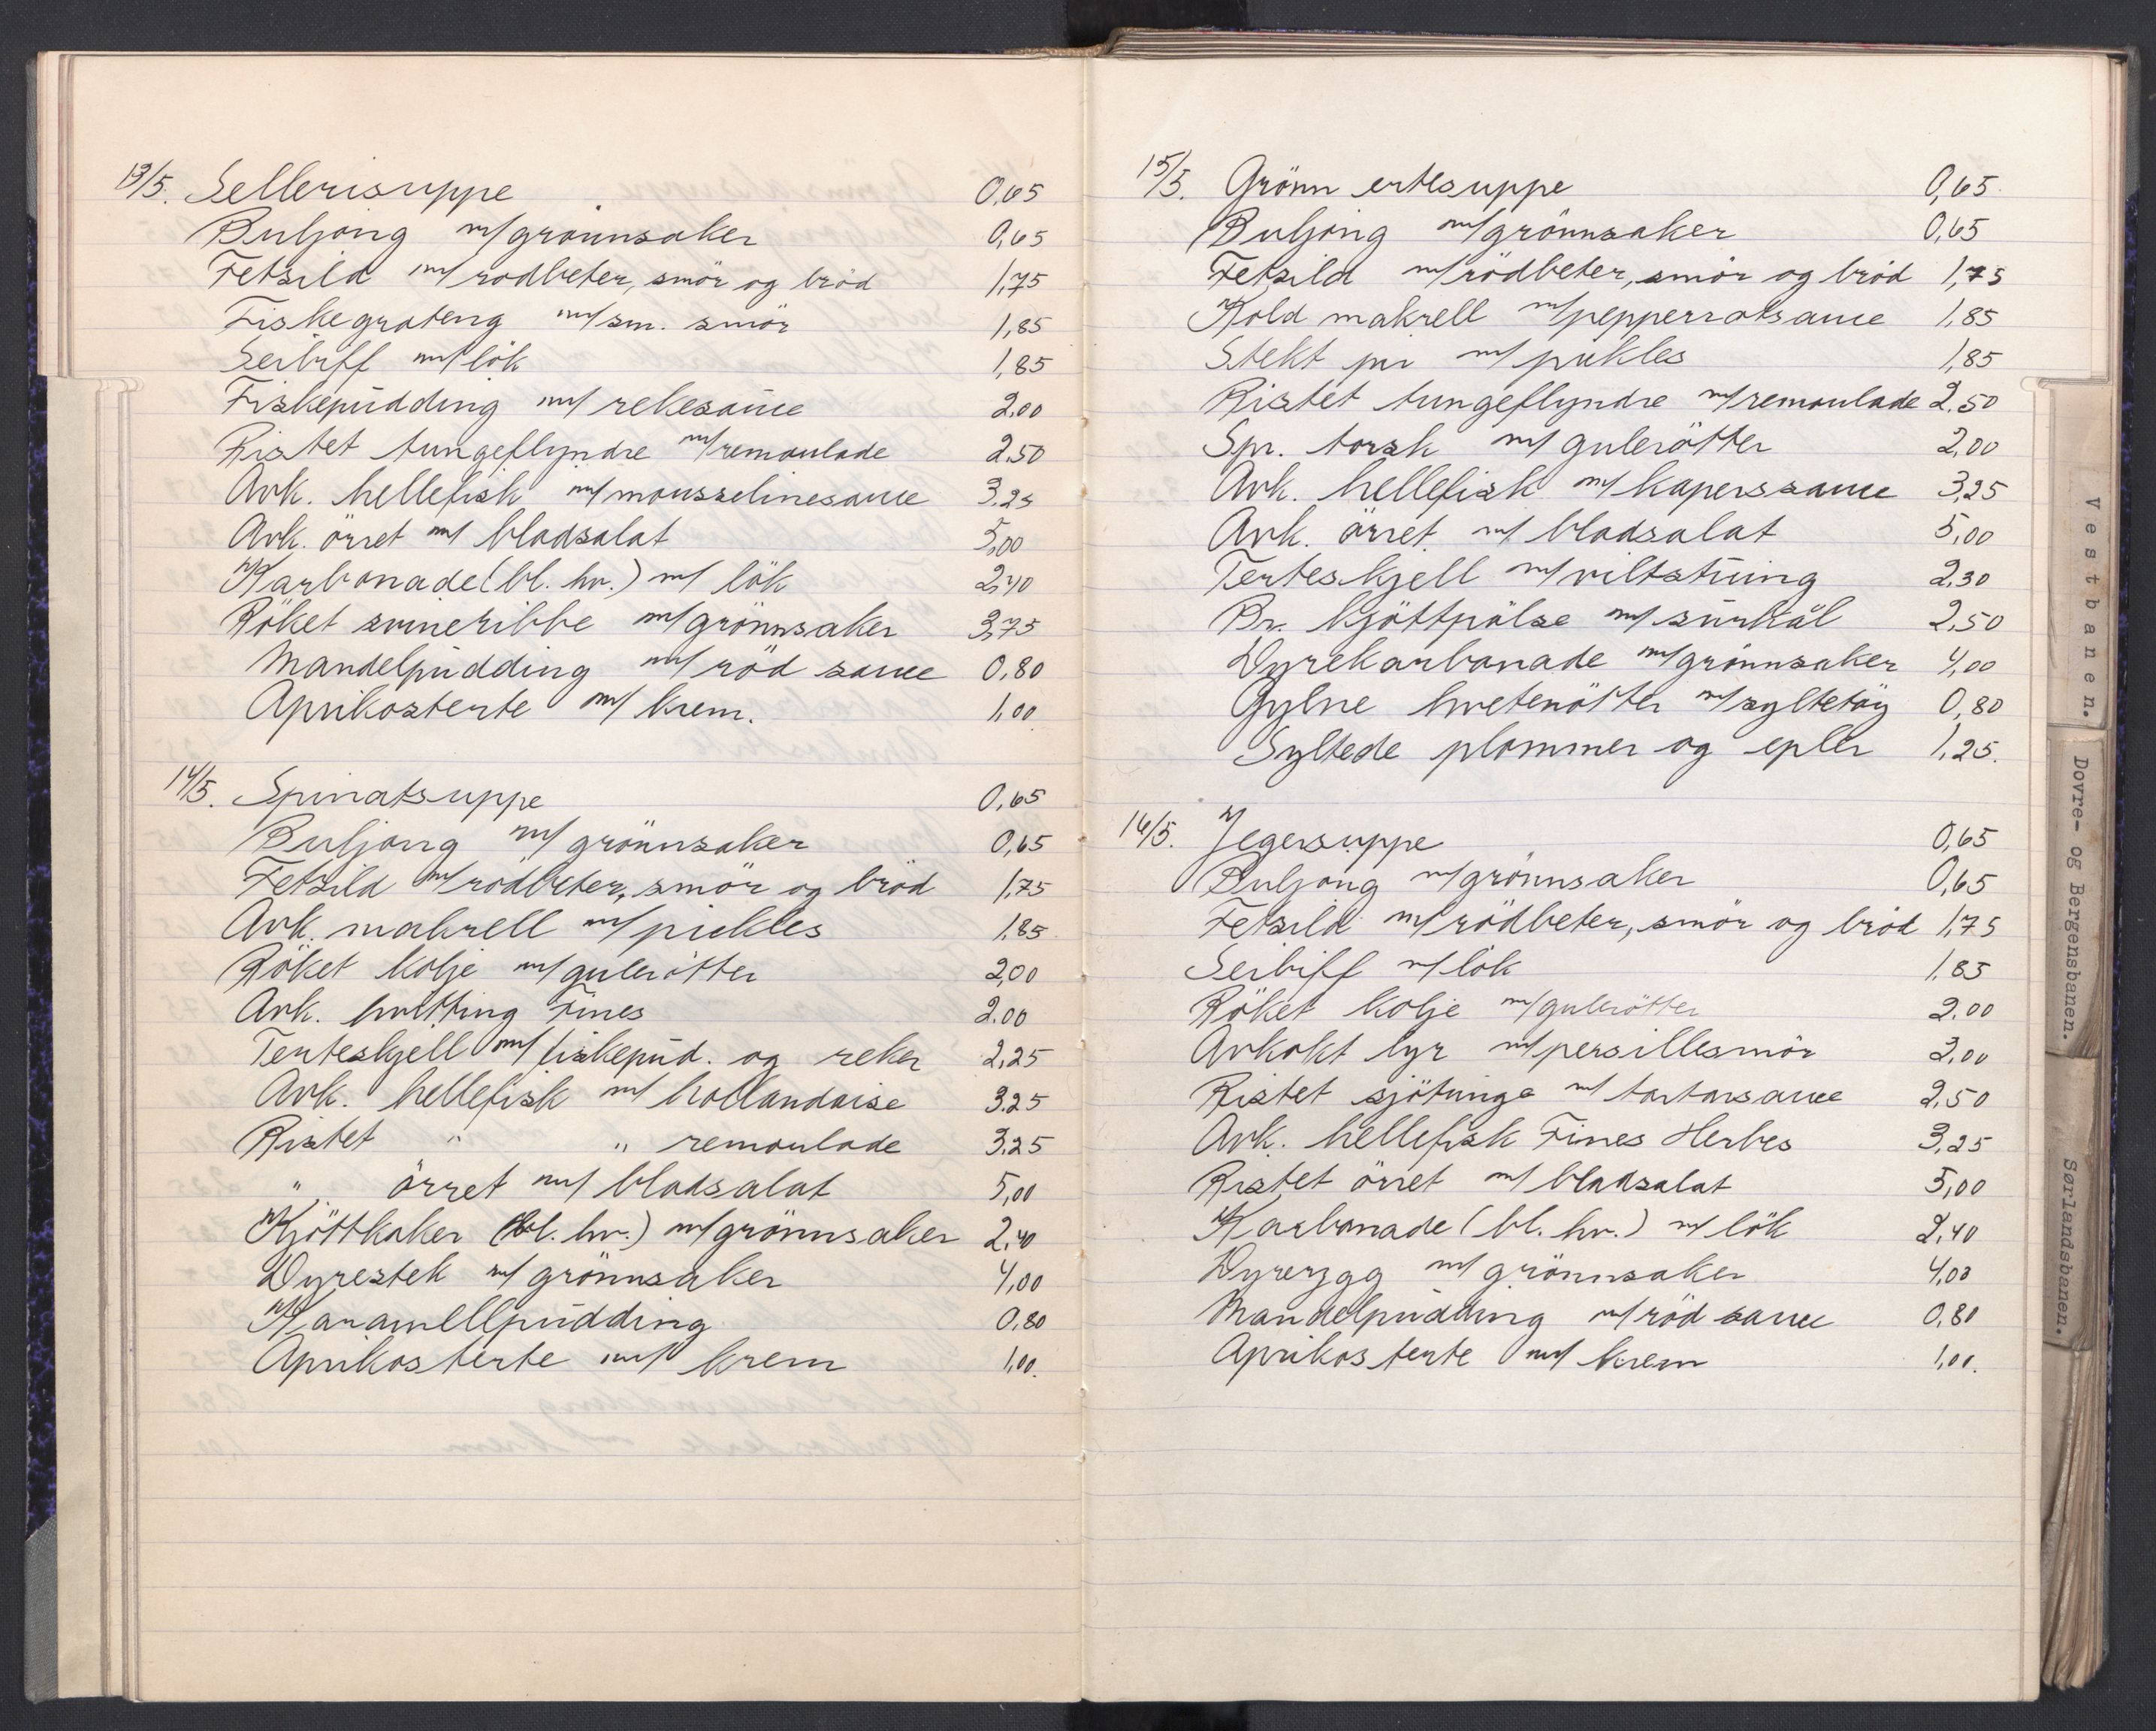 13/5. Sellerisuppe 0,65
Buljong m/grönnsaker 0,65
Fetsild m/rödbeter, smör og bröd 1,75
Fiskegrateng m/sm. smör 1,85
Seibiff m/lök 1,85
Fiskepudding m/rekesauce 2,00
Ristet tungeflyndre m/remoulade 2,50
Avk. hellefisk m/mousselinesauce 3,25
Avk. örret m/ bladsalat 5,00
Karbonade (bl. hv.) m/ lök 2,40
Röket svineribbe m/grönnsaker 3,75
Mandelpudding m/röd sauce 0,80
Aprikosterte m/ krem. 1,00
14/5. Spinatsuppe 0,65
Buljong m/ grönnsaker 0,65
Fetsild m/rödbeter, smör og bröd 1,75
Avk. makrell m/pickles 1,85
Röket kolje m/gulerötter 2,00
Avk. hvitting Fines 2.00
Terteskjell m/fiskepud. og reker 2,25
Avk. hellefisk m/ hollandaise 3.25
Ristet " " remoulade 3.25
" örret m/ bladsalat 5,00
Kjöttkaker (bl. hv.) m/grönnsaker 2,40
Dyrestek m/ grönnsaker 4,00
Karamellpudding 0,80
Aprikosterte m/ krem 1,00.
15/5. Grönn ertesuppe 0,65
Buljong m/grönnsaker 0,65
Fetsild m/rödbeter, smör og bröd 1,75
Kold makrell m/pepperrotsauce 1,85
Stekt pir m/ pickles 1,85
Ristet tungeflyndre m/remoulade 2.50
Spr. torsk m/ gulerötter 2,00
Avk. hellefisk m/kaperssauce 3,25
Avk. örret m/ bladsalat 5,00
Terteskjell m/viltstuing 2,30
Br. kjöttpölse m/ surkål 2,50
Dyrekarbonade m/grönnsaker 4,00
Gylne hvetenötter m/syltetöy 0,80
Syltede plommer og epler 1,25.
16/5. Jegersuppe 0,65
Buljong m/grönnsaker 0,65
Fetsild m/rödbeter, smör og bröd 1,75
Seibiff m/lök 1,85
Röket kolje m/gulerötter 2.00
Avkokt lyr m/persillesmör 2,00
Ristet sjötunge m/ tartarsauce 2,50
Avk. hellefisk Fines Herbes 3,25
Ristet örret m/ bladsalat 5,00
Karbonade (bl. hv.) m/ lök 2,40
Dyrerygg m/ grönnsaker 4,00
Mandelpudding m/röd sauce 0,80
Aprikosterte m/ krem 1,00.
Vestbanen.
Dovre- og Bergensbanen.
Sørlandsbanen.